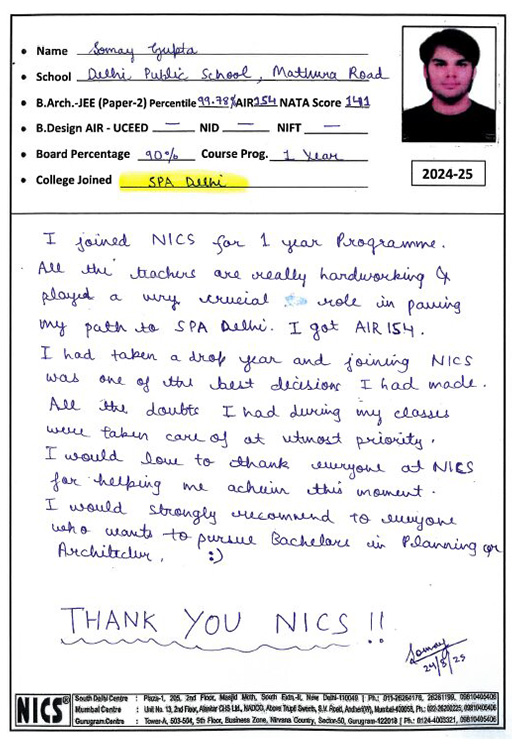 • Name Somay Gupta
• School Delhi Public School, Mathura Road
• B.Arch.-JEE (Paper-2) Percentile 99.78% AIR 154 NATA Score 141
• B.Design AIR - UCEED — NID — NIFT —
• Board Percentage 90% Course Prog. 1 Year
• College Joined SPA Delhi
2024-25
I joined NICS for 1 year Programme.
All the teachers are really hardworking &
played a very crucial role in paving
my path to SPA Delhi. I got AIR 154.
I had taken a drop year and joining NICS
was one of the best decision I had made.
All the doubts I had during my classes
were taken care of at utmost priority.
I would love to thank everyone at NICS
for helping me achieve this moment.
I would strongly recommend to everyone
who wants to pursue Bachelors in Planning or
Architectur. :)
THANK YOU NICS !!
Somay
24/5/25
NICS®
South Delhi Centre : Plaza-1, 205, 2nd Floor, Masjid Moth, South Extn.-II, New Delhi-110049 | Ph.: 011-26264178, 26261199, 09810405406
Mumbai Centre : Unit No. 13, 2nd Floor, Alankar CHS Ltd., NADCO, Above Trupti Sweets, S.V. Road, Andheri(W), Mumbai-400058, Ph.: 022-26200225,
Gurugram Centre : Tower-A, 503-504, 5th Floor, Business Zone, Nirvana Country, Sector-50, Gurugram-122018 | Ph.: 0124-4003321, 09810405406